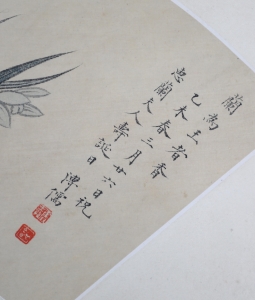 蘭為王者香
乙未春三月廿六日祝
忠蘭夫人壽誕日
溥儒